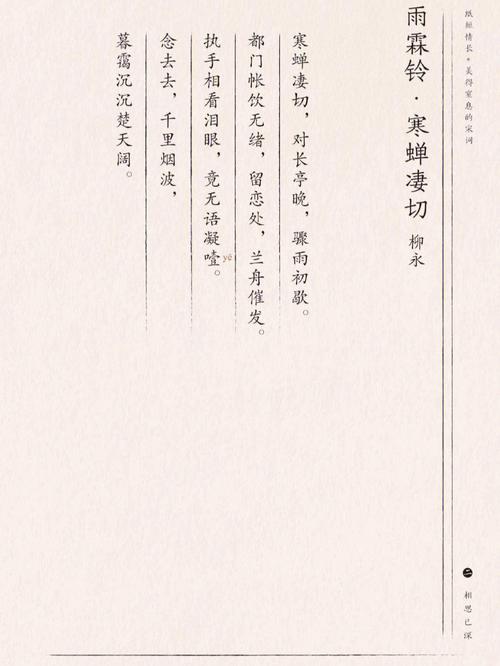 纸短情长·美得窒息的宋词
雨霖铃·寒蝉凄切
柳永
寒蝉凄切，对长亭晚，骤雨初歇。
都门帐饮无绪，留恋处，兰舟催发。
执手相看泪眼，竟无语凝噎。
yē
念去去，千里烟波，
暮霭沉沉楚天阔。
二
相思已深